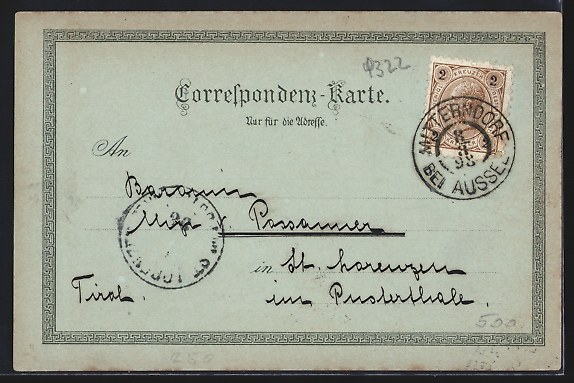 4322
2 KREUZER 2
Correspondenz-Karte.
Nur für die Adresse.
MITTERNDORF
98
BEI AUSSEE
An
Baronin
v. Possanner
in St. Lorenzen
Tirol. im Pusterthale.
ST. LORENZEN
98
500
250